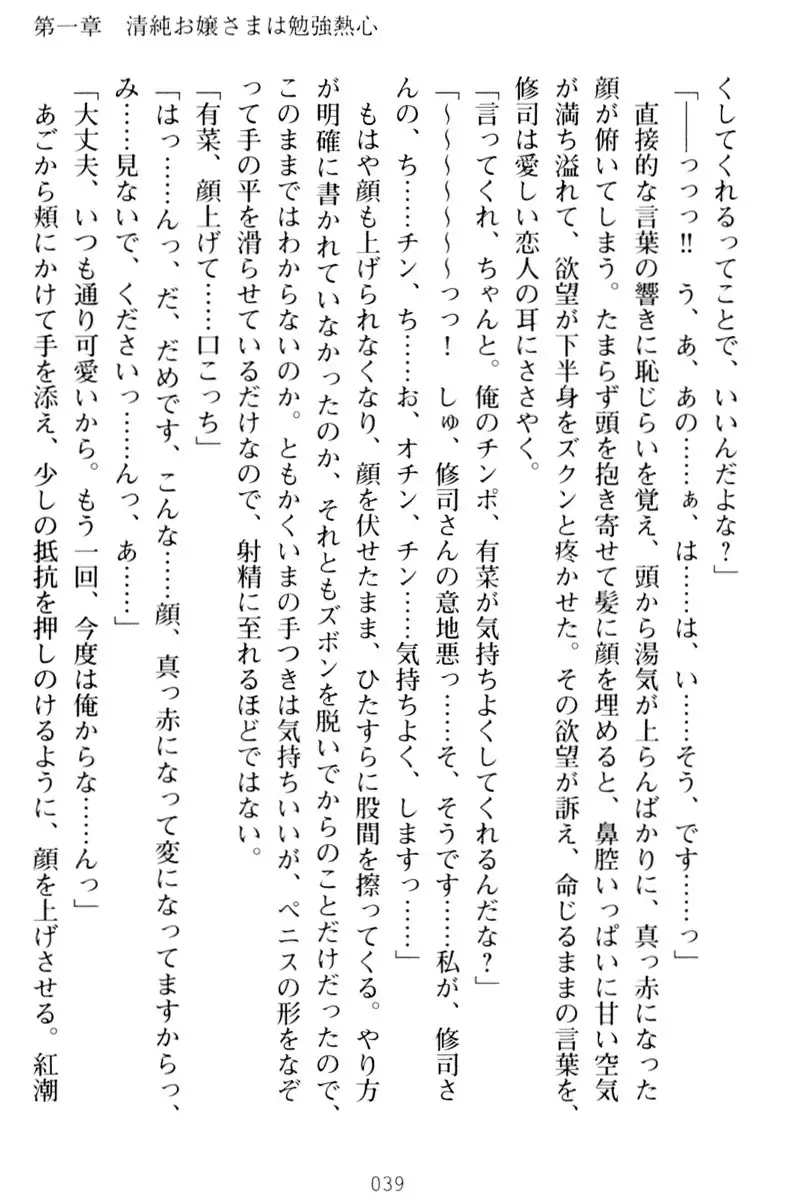 第一章　清純お嬢さまは勉強熱心
くしてくれるってことで、いいんだよな？」
「――っっっ‼　う、あ、あの……ぁ、は……は、い……そう、です……っ」
　直接的な言葉の響きに恥じらいを覚え、頭から湯気が上らんばかりに、真っ赤になった
顔が俯いてしまう。たまらず頭を抱き寄せて髪に顔を埋めると、鼻腔いっぱいに甘い空気
が満ち溢れて、欲望が下半身をズクンと疼かせた。その欲望が訴え、命じるままの言葉を、
修司は愛しい恋人の耳にささやく。
「言ってくれ、ちゃんと。俺のチンポ、有菜が気持ちよくしてくれるんだな？」
「～～～～～～っっ！　しゅ、修司さんの意地悪っ……そ、そうです……私が、修司さ
んの、ち……チン、ち……お、オチン、チン……気持ちよく、しますっ……」
　もはや顔も上げられなくなり、顔を伏せたまま、ひたすらに股間を擦ってくる。やり方
が明確に書かれていなかったのか、それともズボンを脱いでからのことだけだったので、
このままではわからないのか。ともかくいまの手つきは気持ちいいが、ペニスの形をなぞ
って手の平を滑らせているだけなので、射精に至れるほどではない。
「有菜、顔上げて……口こっち」
「はっ……んっ、だ、だめです、こんな……顔、真っ赤になって変になってますからっ、
み……見ないで、くださいっ……んっ、あ……」
「大丈夫、いつも通り可愛いから。もう一回、今度は俺からな……んっ」
　あごから頬にかけて手を添え、少しの抵抗を押しのけるように、顔を上げさせる。紅潮
039